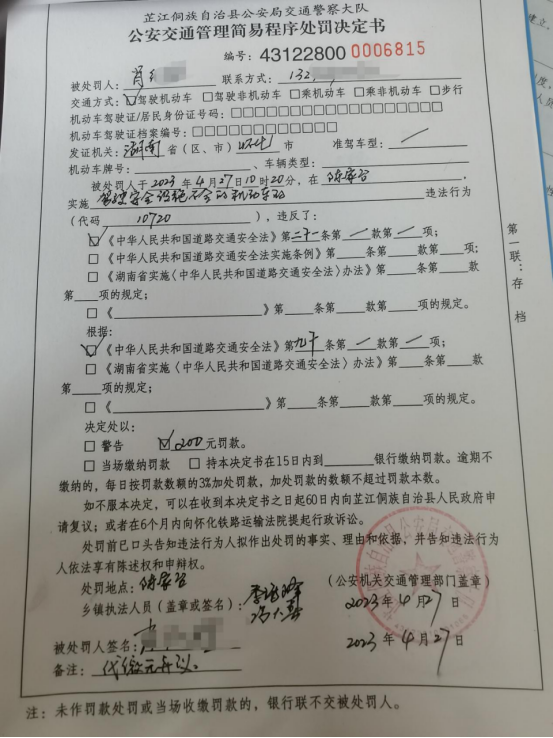 芷江侗族自治县公安局交通警察大队
公安交通管理简易程序处罚决定书
编号：43122800 0006815
被处罚人： 联系方式：132
交通方式：☑驾驶机动车 □驾驶非机动车 □乘机动车 □乘非机动车 □步行
机动车驾驶证/居民身份证号码：□□□□□□□□□□□□□□□□□□
机动车驾驶证档案编号：□□□□□□□□□□□□
发证机关：湖南省（区、市）怀化市 准驾车型：/
机动车牌号： 、车辆类型：
被处罚人于2023年4月27日10时20分，在
实施驾驶安全设施不全的机动车的违法行为
（代码 10720 ），违反了：
☑《中华人民共和国道路交通安全法》第二十一条第/款第/项；
□《中华人民共和国道路交通安全法实施条例》第__条第__款第__项；
□《湖南省实施〈中华人民共和国道路交通安全法〉办法》第__条第__款
第__项的规定；
□《 》第__条第__款第__项的规定。
根据：
☑《中华人民共和国道路交通安全法》第九十条第/款第/项；
□《湖南省实施〈中华人民共和国道路交通安全法〉办法》第__条第__款
第__项的规定；
□《 》第__条第__款第__项的规定。
决定处以：
□ 警告 ☑200元罚款。
□ 当场缴纳罚款 □ 持本决定书在15日内到______银行缴纳罚款。逾期不
缴纳的，每日按罚款数额的3%加处罚款，加处罚款的数额不超过罚款本数。
如不服本决定，可以在收到本决定书之日起60日内向芷江侗族自治县人民政府申
请复议；或者在6个月内向怀化铁路运输法院提起行政诉讼。
处罚前已口头告知违法行为人拟作出处罚的事实、理由和依据，并告知违法行为
人依法享有陈述权和申辩权。
处罚地点：
（公安机关交通管理部门盖章）
乡镇执法人员（盖章或签名）：
2023年4月27日
被处罚人签名：
2023年4月27日
备注：代缴无异议。
注：未作罚款处罚或当场收缴罚款的，银行联不交被处罚人。
第一联：存档